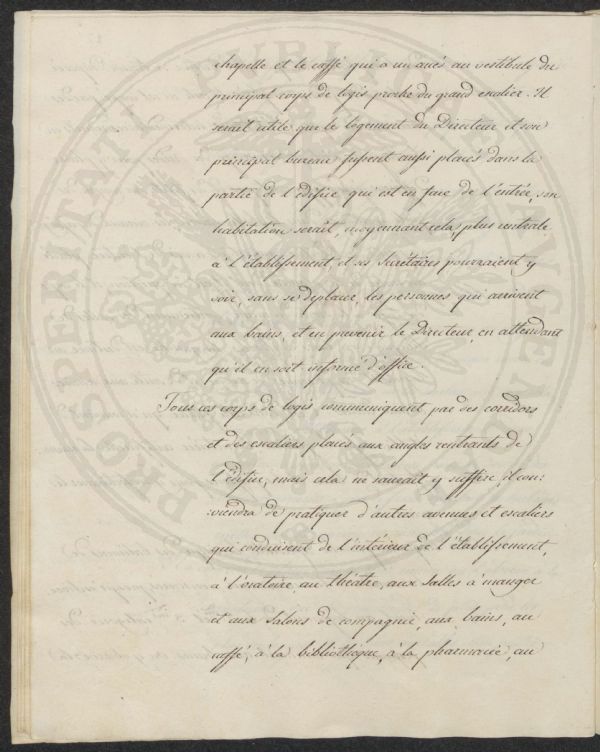 chapelle et le caffé qui a un accès au vestibule du
principal corps de logis proche du grand escalier. Il
serait utile que le logement du Directeur et son
principal bureau fussent aussi placés dans la
partie de l'édifice qui est en face de l'entrée, son
habitation serait, moyennant cela, plus centrale
à l'établissement, et ses Secrétaires pourraient y
voir, sans se déplacer, les personnes qui arrivent
aux bains, et en prévenir le Directeur, en attendant
qu'il en soit informé d'office.
Tous ces corps de logis communiquent par des corridors
et des escaliers placés aux angles rentrants de
l'édifice, mais cela ne saurait y suffire, il con:
:viendra de pratiquer d'autres avenues et escaliers
qui conduisent de l'intérieur de l'établissement,
à l'oratoire, au théatre, aux Salles à manger
et aux Salons de compagnie, aux bains, au
caffé, à la bibliothèque, à la pharmacie, au
PROSPERITATI PUBLICAE